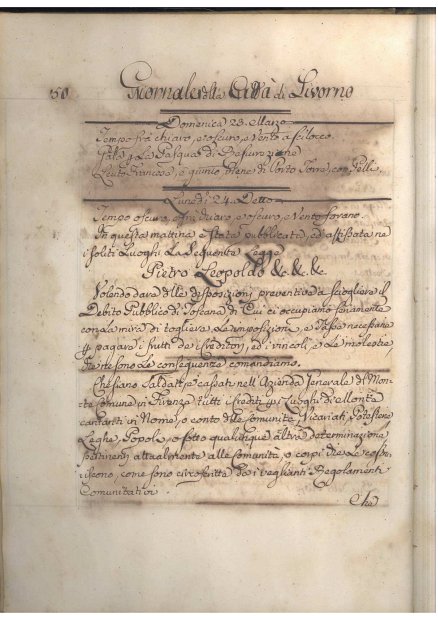 50 Giornale della Città di Livorno
Domenica 23. Marzo
Tempo frà chiaro, e oscuro, e Vento a scilocco
Gala p La Pasqua di Resurrezione
Leuto Francese, è giunto Viene di Porto Torre, con Pelli
Lunedi 24. Detto
Tempo oscuro, e frà chiaro, e oscuro, e Vento forano.
In questa mattina è stata pubblicata, ed affissata ne
i soliti Luoghi La Seguente Legge
Pietro Leopoldo &c. &c. &c.
Volendo dare delle disposizioni preventive a sciogliere il
Debito Pubblico di Toscana di Cui ci occupiamo seriamente
con la mira di togliere Le imposizioni, e Tasse necessarie
p pagare i frutti de i Creditori, ed i vincoli, e Le molestie
che ne sono Le conseguenze comandiamo.
Che siano Saldati, e cassati nell'Azienda Generale di Mon-
te Comune in Firenze tutti i Crediti p Luoghi di Monte
cantanti in Nome, o conto delle Comunità, Vicariati, Potesterie
Leghe, Popoli, o sotto qualunque altra determinazione
pertinenti attualmente alle Comunità, o corpi che Le
come sono circoscritte da i veglianti Regolamenti
Comunitativi
Che